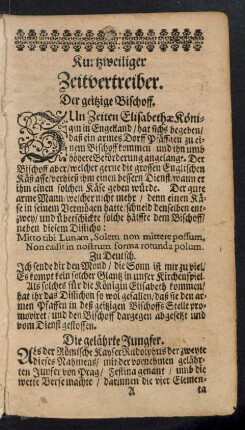 Kurtzweiliger
Zeitvertreiber.
Der geitzige Bischoff.
ZUn Zeiten Elisabethæ Köni-
gin in Engelland / hat sichs begeben /
daß ein armes Dorff Pfäfflein zu ei-
nem Bischoff kommen und ihn umb
höhere Beförderung angelangt. Der
Bischoff aber / welcher gerne die grossen Englischen
Käß asse / verhieß ihm einen bessern Dienst wann er
ihm einen solchen Käse geben würde. Der gute
arme Mann / welcher nicht mehr / denn einen Kä-
se in seinem Vermögen hatte schneid denselben ent-
zwey / und überschickte solche hälffte dem Bischoff /
neben diesem Disticho:
Mitto tibi Lunam, Solem non mittere possum,
Non cadit in nostrum forma rotunda polum.
Zu Deutsch.
Ich sende dir den Mond / die Sonn ist mir zu viel /
Es kompt kein solcher Glantz in unser Kirchenspiel.
Als solches für die Königin Elisabeth kommen /
hat ihr das Distichon so wol gefallen / daß sie den ar-
men Pfaffen in deß geitzigen Bischoffs Stelle pro-
moviret / und den Bischoff dargegen abgesetzt und
vom Dienst gestossen.
Die gelährte Jungfer.
Als der Römische Kayser Rudolphus der zweyte
dieses Nahmens / mit der vornehmen gelähr-
ten Jungfer von Prag / Festina genant / umb die
wette Verse machte / darinnen die vier Elemen-
A ta